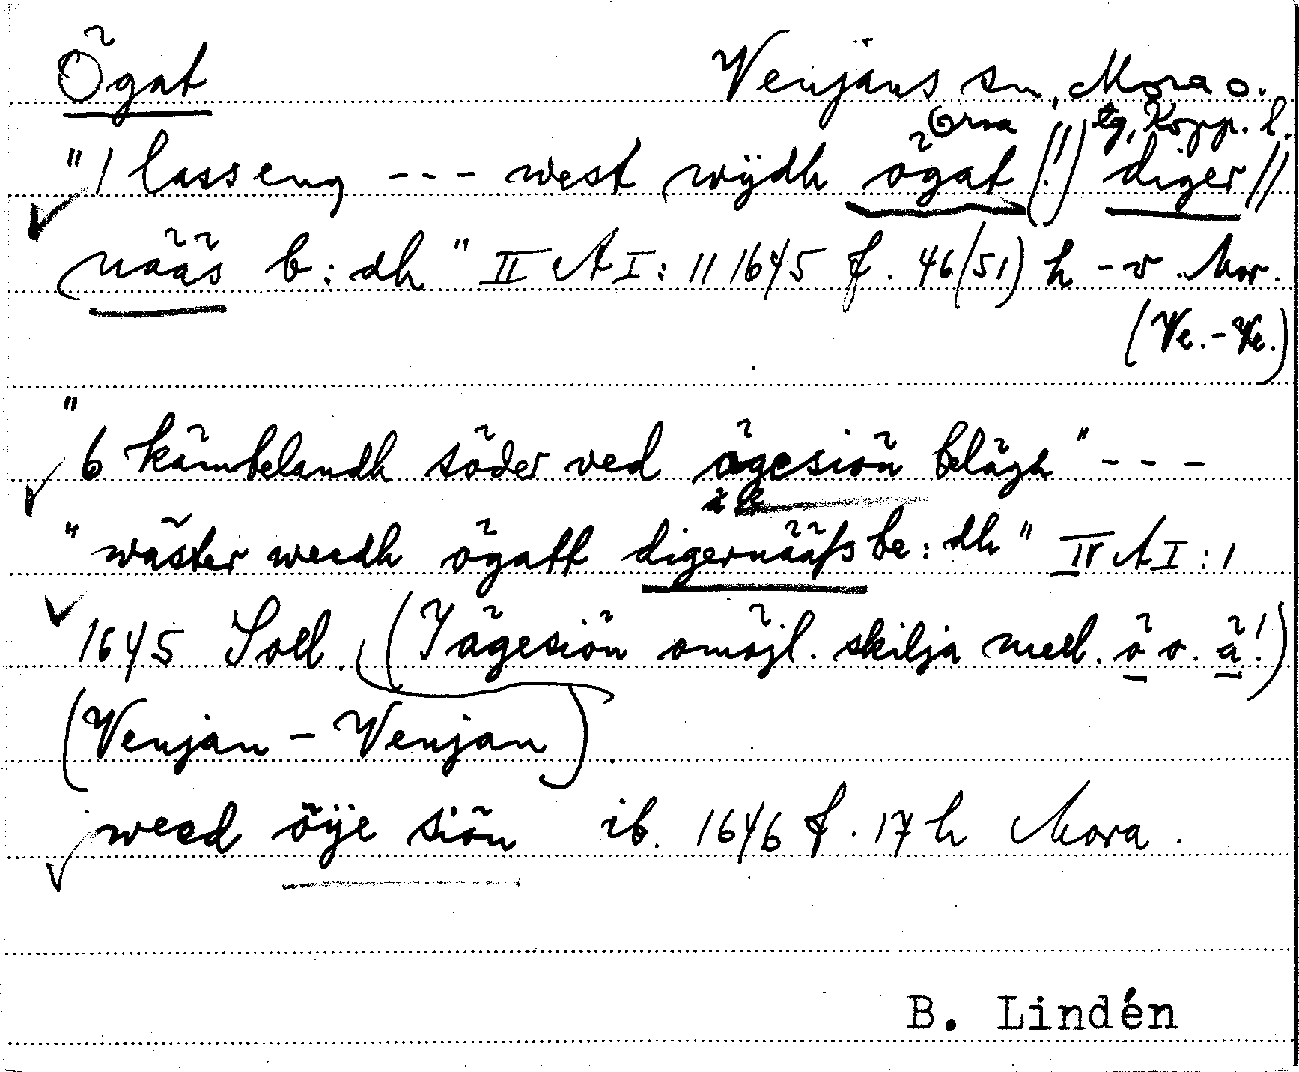 Ögat Venjans sn, Mora o.
Orsa tg, Kopp. l.
"1 lass eng --- west wÿdh ögat (!) // diger //
nääs b: dh" II A I: 11 1645 f. 46(51) h - v Mor.
(Ve. - Ve.)
"6 kämbelandh söder ved ägesiön belägh" ---
"wäster weedh ögatt digernääfs be: dh" IV A I: 1
1645 Soll. (I ägesiön omöjl. skilja mell. ö o. ä!)
(Venjan - Venjan)
weed öÿe siön ib. 1646 f. 17 h Mora.
B. Lindén